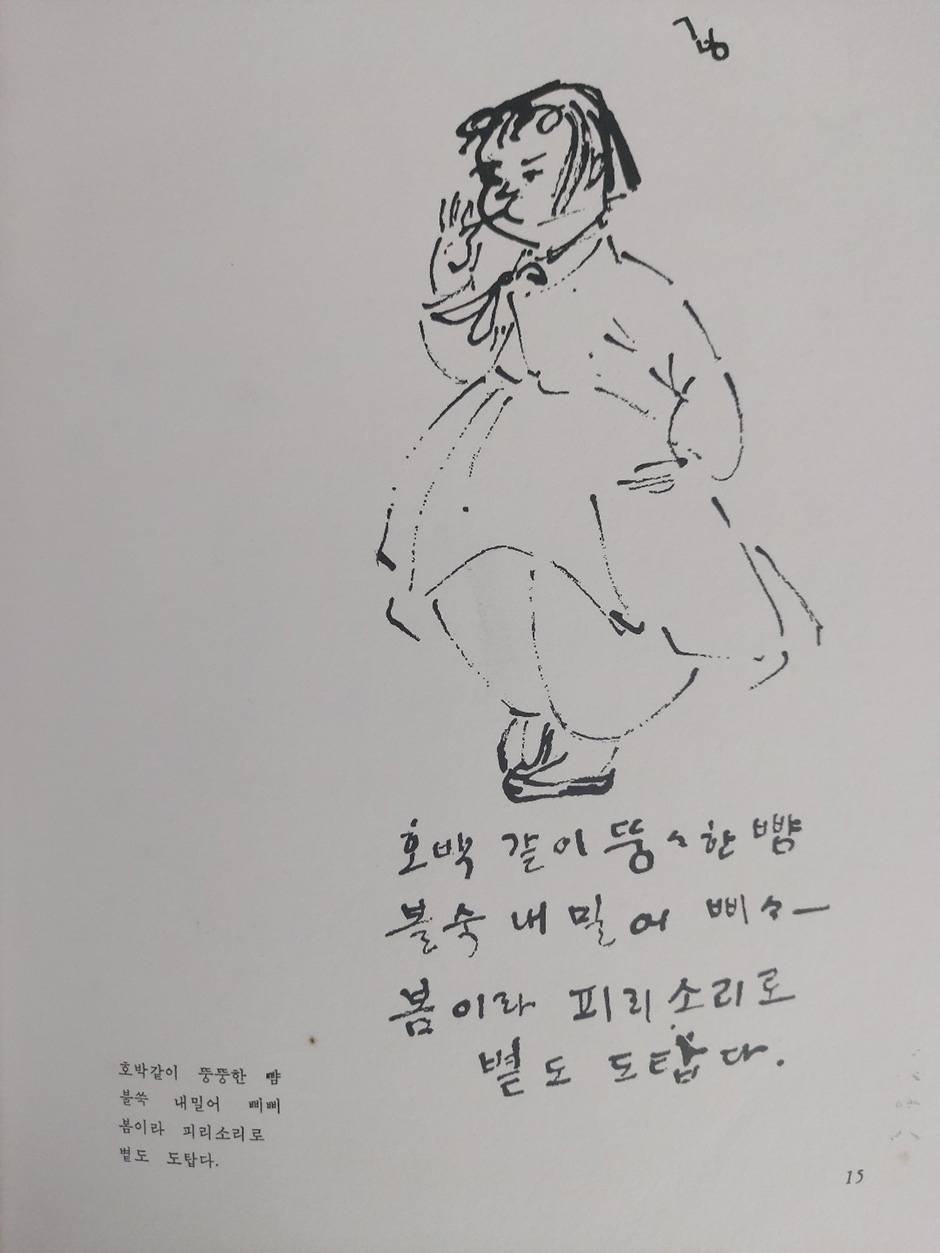 호박 같이 뚱〻한 뺨
불숙 내 밀어 삐〻—
봄이라 피리소리로
볕도 도탑다.
호박같이 뚱뚱한 뺨
불쑥 내밀어 삐삐
봄이라 피리소리로
볕도 도탑다.
15